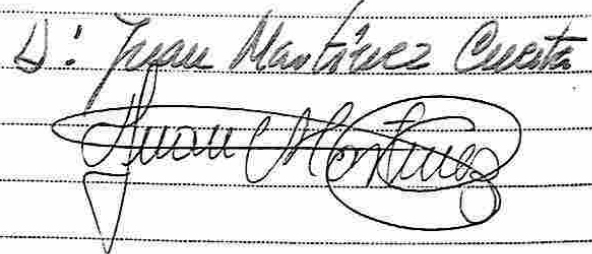 D: Juan Martínez Cuesta
Juan Martinez